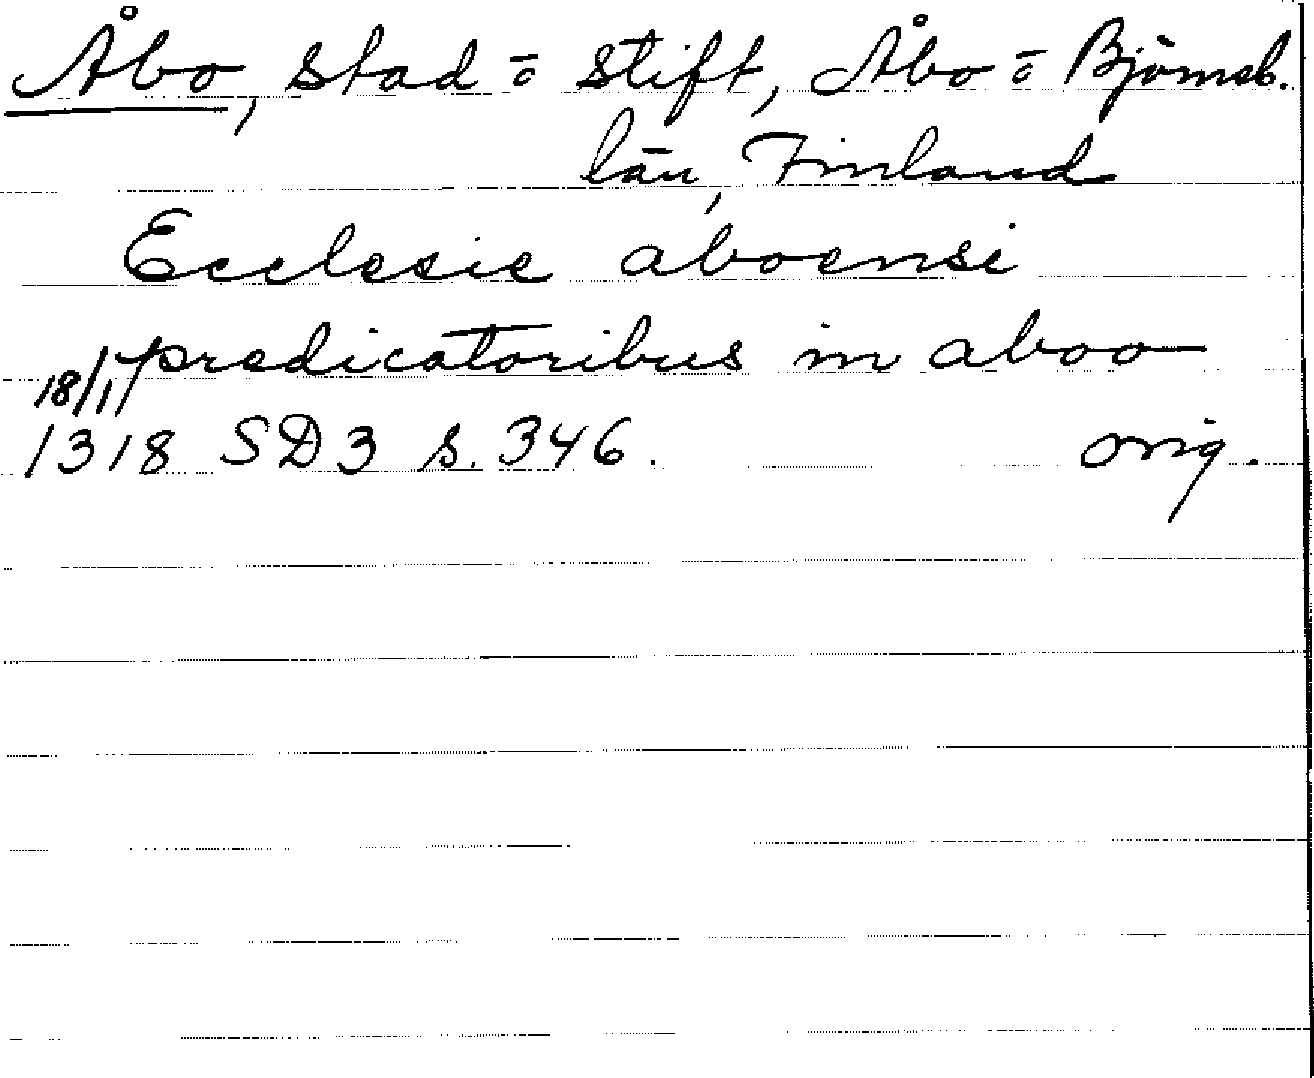 Åbo, stad o stift, Åbo o Björneb.
län, Finland
Ecclesie aboensi
predicatoribus in aboo
18/11
1318 SD3 s. 346. orig.